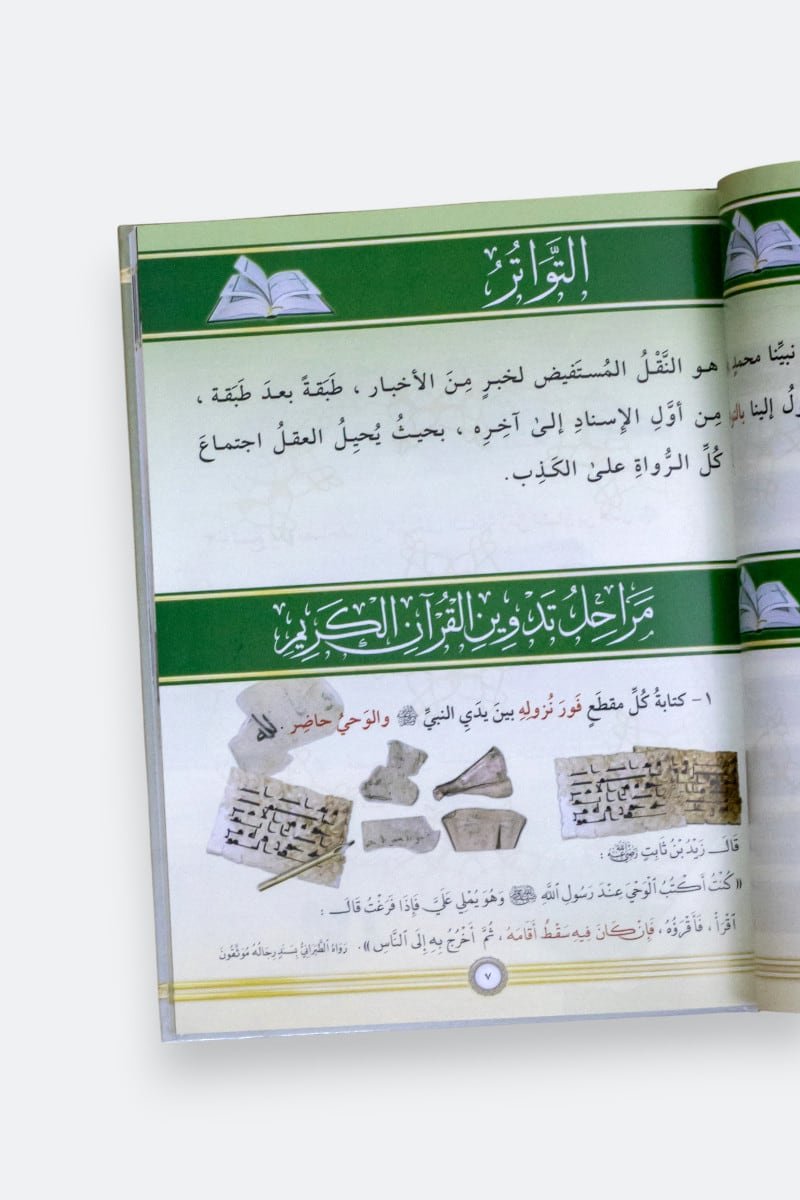 التَّوَاتُرُ
هو النَّقْلُ المُستَفيض لخبرٍ مِنَ الأخبار ، طَبَقةً بعدَ طَبَقة ،
مِن أوَّلِ الإسنادِ إلىٰ آخِرِه ، بحيثُ يُحيلُ العقلُ اجتماعَ
كُلِّ الرُّواةِ علىٰ الكَذِب .
مَرَاحِلُ تَدْوِينِ القُرْآنِ الكَرِيمِ
١- كتابةُ كُلِّ مقطَعٍ فَورَ نُزولِهِ بينَ يدَيِ النبيِّ ﷺ والوَحيُ حاضِر .
قَالَ زَيْدُ بْنُ ثَابِتٍ رضي الله عنه :
« كُنْتُ أَكْتُبُ الْوَحْيَ عِنْدَ رَسُولِ اللَّهِ ﷺ وَهُوَ يُمْلِي عَلَيَّ فَإِذَا فَرَغْتُ قَالَ :
اقْرَأْ ، فَأَقْرَؤُهُ ، فَإِنْ كَانَ فِيهِ سَقْطٌ أَقَامَهُ ، ثُمَّ أَخْرُجُ بِهِ إِلَى النَّاسِ » . رَوَاهُ الطَّبَرَانِيُّ بِسَنَدٍ رِجَالُهُ مُوَثَّقُونَ
٧
نبيِّنا محمدٍ
إلينا